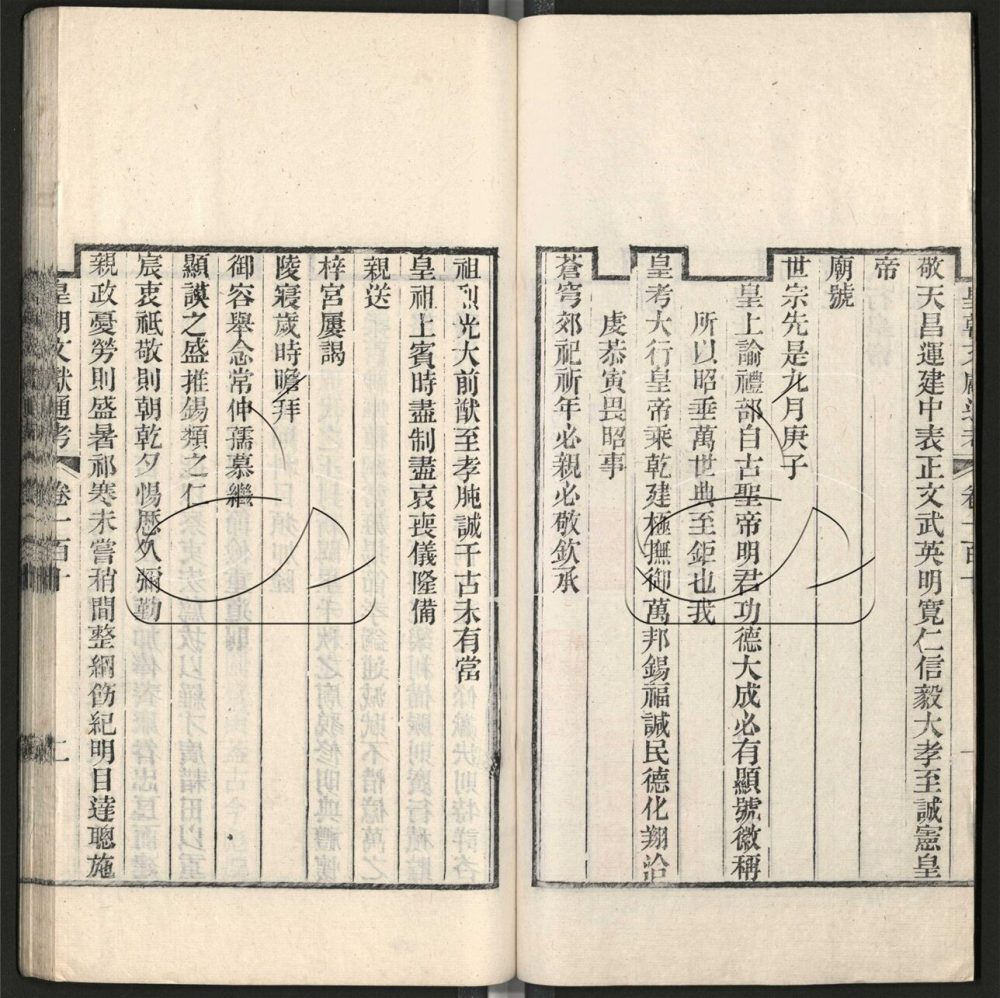 敬天昌運建中表正文武英明寬仁信毅大孝至誠憲皇
帝
廟號
世宗先是九月庚子
皇上諭禮部自古聖帝明君功德大成必有顯號徽稱
所以昭垂萬世典至鉅也我
皇考大行皇帝乘乾建極撫御萬邦錫福諴民德化翔洽
虔恭寅畏昭事
蒼穹郊祀祈年必親必敬欽承
祖烈光大前猷至孝肫誠千古未有當
皇祖上賓時盡制盡哀喪儀隆備
親送
梓宮屢謁
陵寢歲時瞻拜
御容舉念常伸孺慕繼
顯謨之盛推錫類之仁
宸衷祗敬則朝乾夕惕歷久彌勤
親政憂勞則盛暑祁寒未嘗稍間整綱飭紀明目達聰施
皇朝文獻通考
卷一百十
二